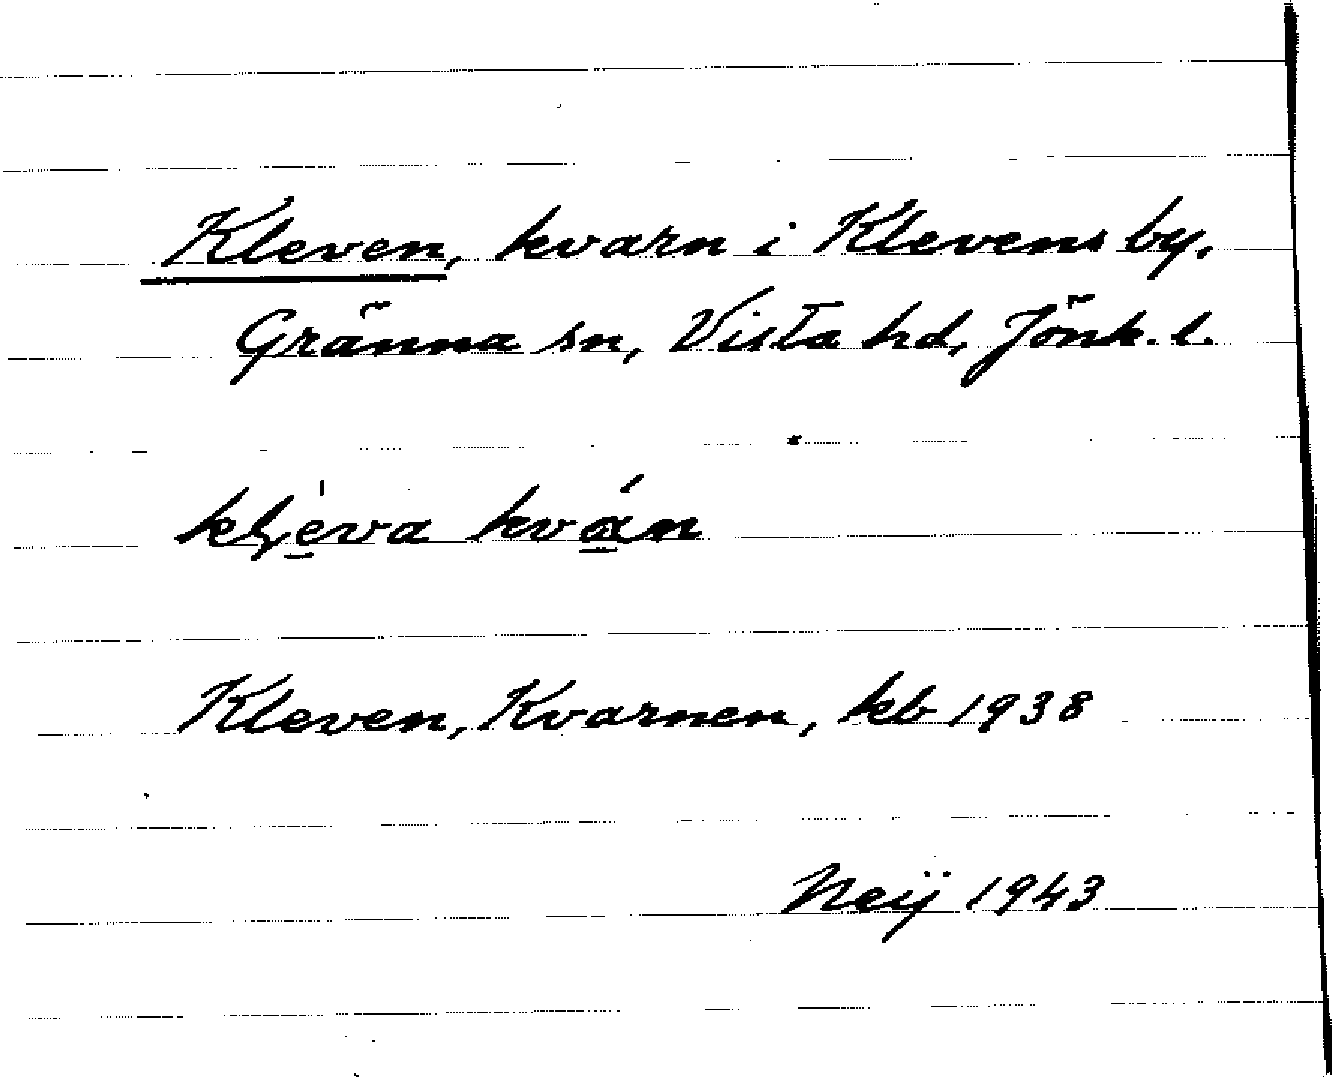 Kleven, kvarn i Klevens by,
Gränna sn, Vista hd, Jönk. l.
kḷè̱va kvá̱n
Kleven, Kvarnen, kb 1938
Neij 1943